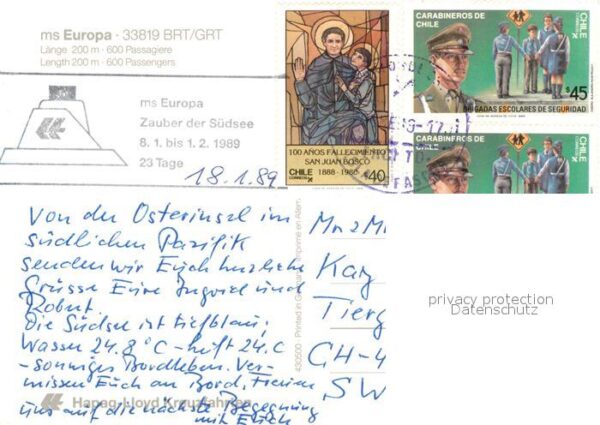 ms Europa · 33819 BRT/GRT
Länge 200 m · 600 Passagiere
Length 200 m · 600 Passengers
ms Europa
Zauber der Südsee
8. 1. bis 1. 2. 1989
23 Tage
18.1.89
100 AÑOS FALLECIMIENTO
SAN JUAN BOSCO
CHILE 1888 - 1988
CORREOS
$40
CARABINEROS DE
CHILE
CHILE
CORREOS
$45
BRIGADAS ESCOLARES DE SEGURIDAD
CARABINEROS DE
CHILE
CHILE
CORREOS
Von der Osterinsel im
südlichen Pazifik
senden wir Euch herzliche
Grüsse Eure Ingrid und
Robert.
Die Südsee ist tiefblau,
Wasser 24.8°C - Luft 24.C
- sonniges Bordleben. Ver-
missen Euch an Bord, freuen
uns auf die nächste Begegnung
mit Euch
Hapag-Lloyd Kreuzfahrten
430500 · Printed in Germany · Imprimé en Allem.
Kay
Tierg
CH-4
SW
privacy protection
Datenschutz